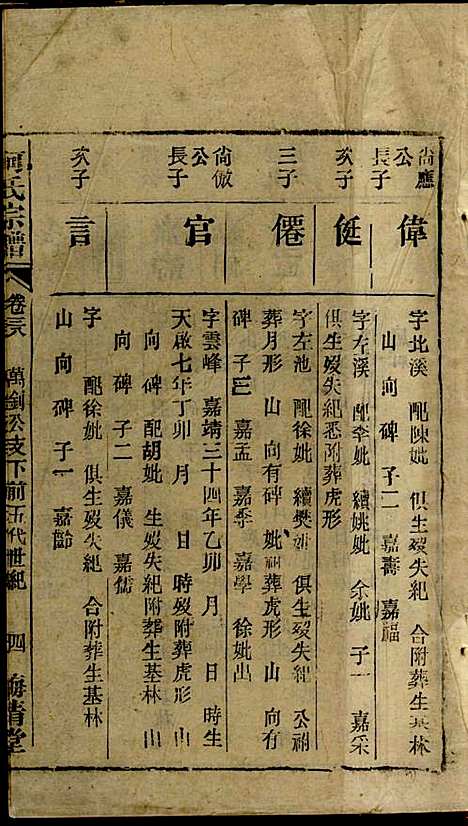 尙應公長子
偉
字北溪 配陳妣 俱生歿失紀 合附葬生基林
山 向 碑 子二 嘉壽 嘉福
次子
侹
字左溪 配李妣 續姚妣 余妣 子一 嘉采
俱生歿失紀悉附葬虎形
三子
僊
字左池 配徐妣 續樊妣 俱生歿失紀 公祔
葬月形 山 向有碑 妣祔葬虎形 山 向有
碑 子三 嘉孟 嘉季 嘉學 徐妣出
尙倣公長子
官
字雲峰 嘉靖三十四年乙卯 月 日 時生
天啟七年丁卯 月 日 時歿附葬虎形山
向 碑 配胡妣 生歿失紀附葬生基林 山
向 碑 子二 嘉儀 嘉儒
次子
言
字 配徐妣 俱生歿失紀 合附葬生基林
山 向 碑 子一 嘉齡
何氏宗譜 卷三 萬釗公支下前五代世紀 四